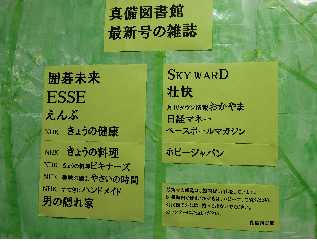 真備図書館
最新号の雑誌
囲碁未来
ESSE
えんぶ
NHK きょうの健康
NHK きょうの料理
NHK きょうの料理ビギナーズ
NHK 趣味の園芸 やさいの時間
NHK すてきにハンドメイド
男の隠れ家
SKYWARD
壮快
月刊タウン情報おかやま
日経マネー
ベースボールマガジン
ホビージャパン
真備図書館